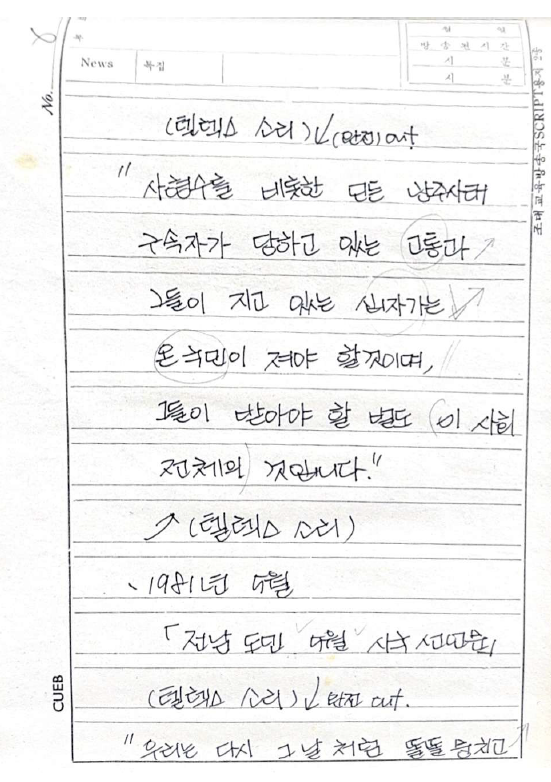 No.
News 특집
방송전시간
시 분
시 분
조대교육방송국SCRIPT용지
(텔텍스 소리)↓(완전) out
"사형수를 비롯한 모든 광주사태
구속자가 당하고 있는 고통과
그들이 지고 있는 십자가는
온 국민이 져야 할것이며,
그들이 받아야 할 벌도 이 사회
전체의 것입니다."
↗(텔텍스 소리)
1981년 5월
「전남 도민 5월 시국 선언문」
(텔텍스 소리)↓완전 out.
"우리는 다시 그날 처럼 똘똘 뭉치고
CUEB